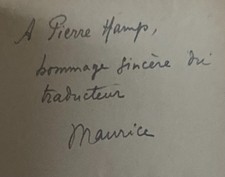 A Pierre Hamps,
hommage sincère du
traducteur
Maurice